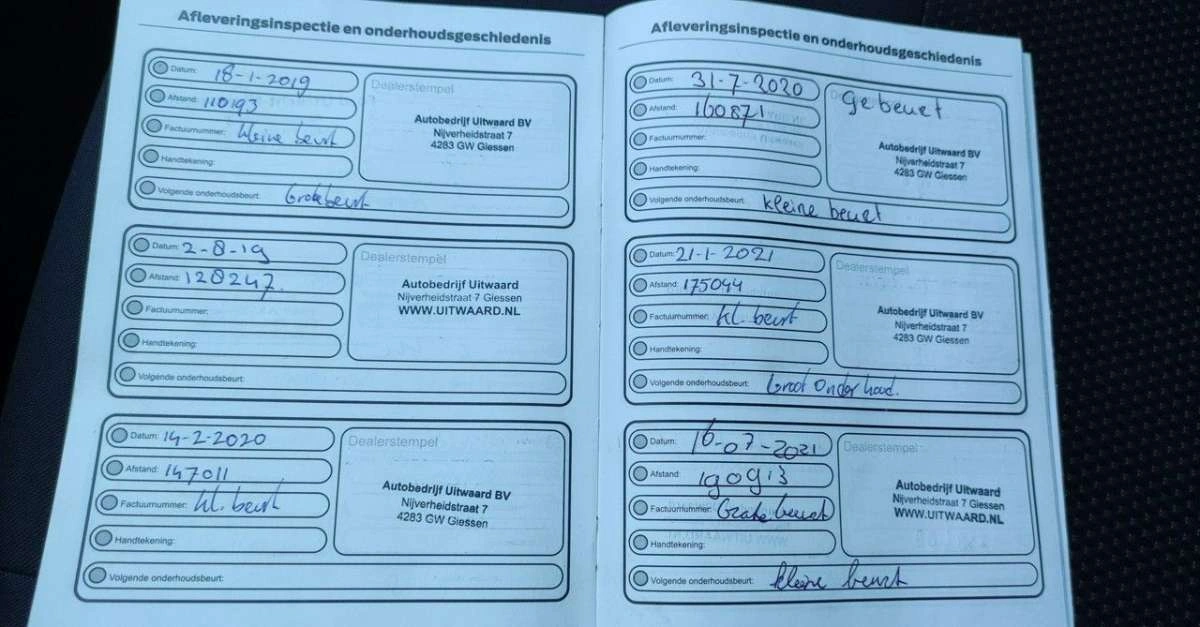 Afleveringsinspectie en onderhoudsgeschiedenis
Datum: 18-1-2019
Afstand: 110193
Factuurnummer: kleine beurt
Handtekening:
Volgende onderhoudsbeurt: Grote beurt
Dealerstempel
Autobedrijf Uitwaard BV
Nijverheidstraat 7
4283 GW Giessen
Datum: 2-8-19
Afstand: 128247
Factuurnummer:
Handtekening:
Volgende onderhoudsbeurt:
Dealerstempel
Autobedrijf Uitwaard
Nijverheidstraat 7 Giessen
WWW.UITWAARD.NL
Datum: 14-2-2020
Afstand: 147011
Factuurnummer: kl. beurt
Handtekening:
Volgende onderhoudsbeurt:
Dealerstempel
Autobedrijf Uitwaard BV
Nijverheidstraat 7
4283 GW Giessen
Afleveringsinspectie en onderhoudsgeschiedenis
Datum: 31-7-2020
Afstand: 160871
Factuurnummer:
Handtekening:
Volgende onderhoudsbeurt: kleine beurt
g beurt
Autobedrijf Uitwaard BV
Nijverheidstraat 7
4283 GW Giessen
Datum: 21-1-2021
Afstand: 175044
Factuurnummer: kl. beurt
Handtekening:
Volgende onderhoudsbeurt: Groot Onderhoud.
Dealerstempel
Autobedrijf Uitwaard BV
Nijverheidstraat 7
4283 GW Giessen
Datum: 16-07-2021
Afstand: 190913
Factuurnummer: Grote beurt
Handtekening:
Volgende onderhoudsbeurt: kleine beurt
Dealerstempel
Autobedrijf Uitwaard
Nijverheidstraat 7 Giessen
WWW.UITWAARD.NL